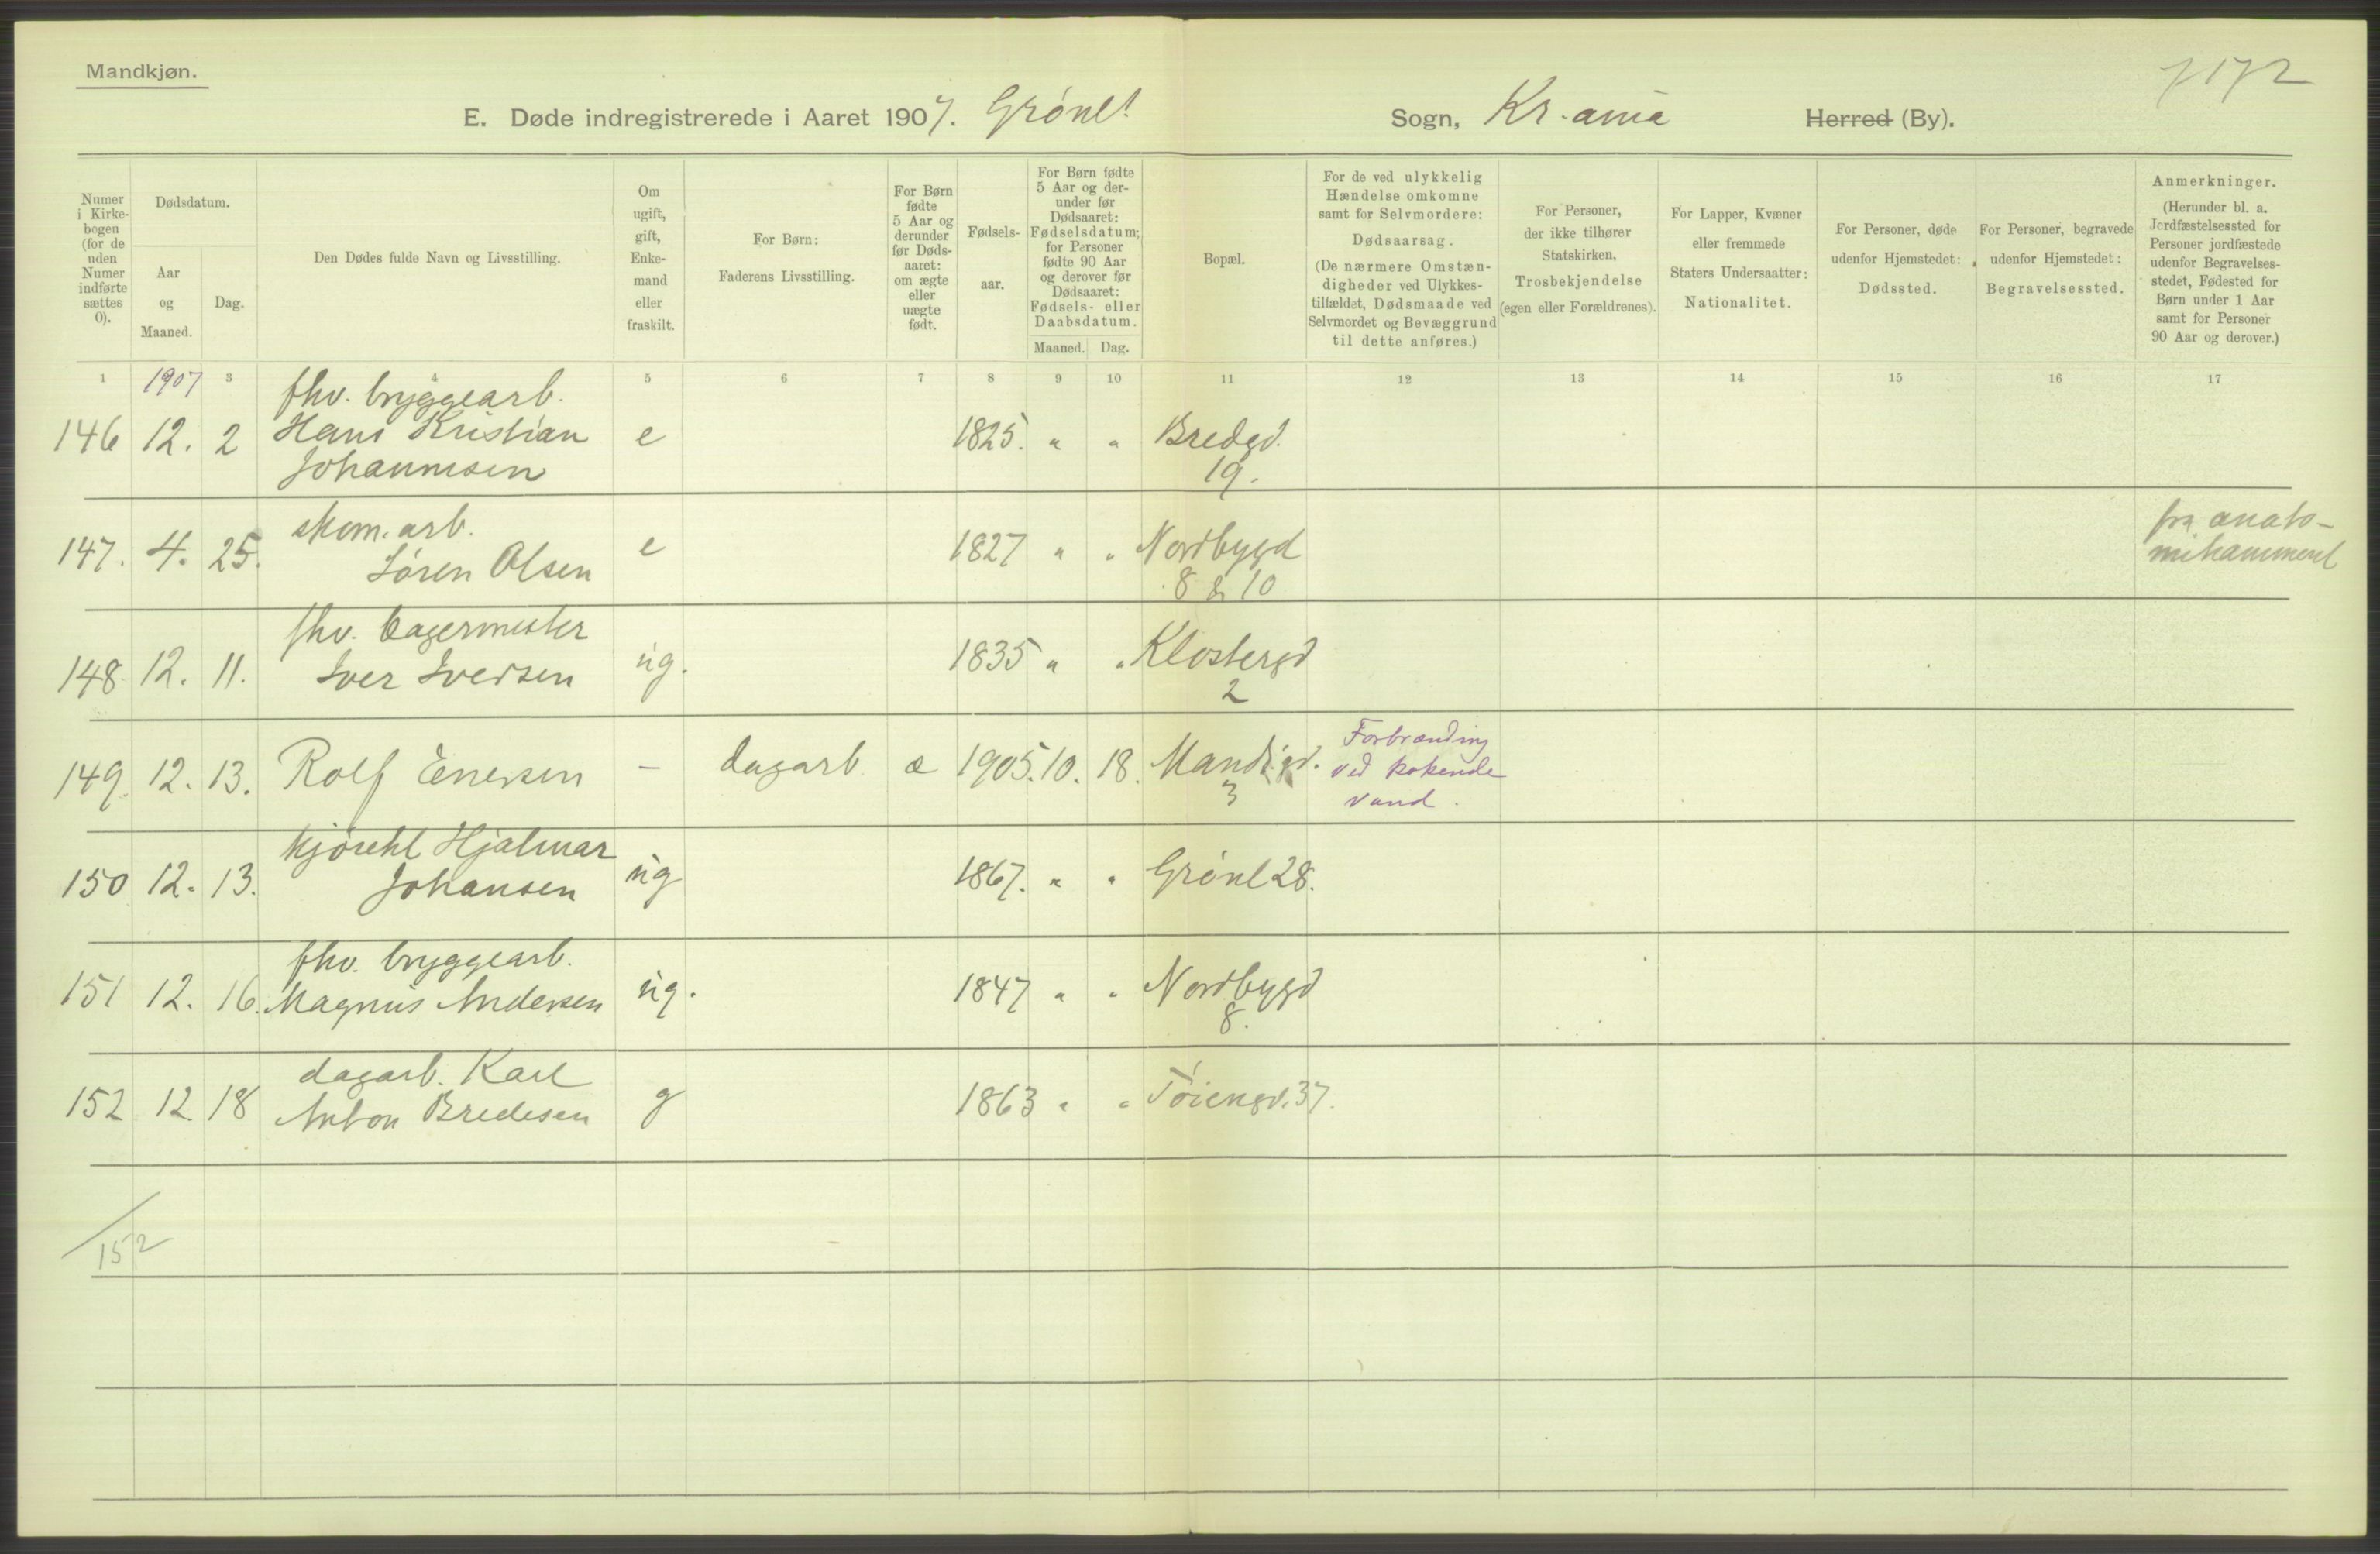 Mandkjøn.
7172
E. Døde indregistrerede i Aaret 1907. Grønl. Sogn, Kr.ania Herred (By).
Numer i Kirkebogen (for de uden Numer indførte sættes 0).
Dødsdatum.
Aar og Maaned.
Dag.
Den Dødes fulde Navn og Livsstilling.
Om ugift, gift, Enkemand eller fraskilt.
For Børn: Faderens Livsstilling.
For Børn fødte 5 Aar og derunder før Dødsaaret: om ægte eller uægte født.
Fødselsaar.
For Børn fødte 5 Aar og derunder før Dødsaaret: Fødselsdatum; for Personer fødte 90 Aar og derover før Dødsaaret: Fødsels- eller Daabsdatum.
Maaned. Dag.
Bopæl.
For de ved ulykkelig Hændelse omkomne samt for Selvmordere: Dødsaarsag. (De nærmere Omstændigheder ved Ulykkestilfældet, Dødsmaade ved Selvmordet og Bevæggrund til dette anføres.)
For Personer, der ikke tilhører Statskirken, Trosbekjendelse (egen eller Forældrenes).
For Lapper, Kvæner eller fremmede Staters Undersaatter: Nationalitet.
For Personer, døde udenfor Hjemstedet: Dødssted.
For Personer, begravede udenfor Hjemstedet: Begravelsessted.
Anmerkninger. (Herunder bl. a. Jordfæstelsessted for Personer jordfæstede udenfor Begravelsesstedet, Fødested for Børn under 1 Aar samt for Personer 90 Aar og derover.)
1 1907 3 4 5 6 7 8 9 10 11 12 13 14 15 16 17
fhv. bryggearb.
146 12. 2 Hans Kristian e 1825. " " Bredgd.
Johannesen 19.
skom. arb. fra anato-
147. 4. 25. Søren Olsen e 1827 " " Nordbygd mikammeret
8 & 10
fhv. bagermester
148 12. 11. Iver Iversen ug. 1835 " " Klostergd
2
Forbrænding
149. 12. 13. Rolf Enersen — dagarb. æ 1905. 10. 18. Mandsgd. ved kokende
3 vand.
Kjørekl Hjalmar
150 12. 13. Johansen ug 1867. " " Grønl 28.
fhv. bryggearb.
151 12. 16. Magnus Andersen ug. 1847 " " Nordbygd
8.
dagarb. Karl
152 12. 18 Anton Bredesen g 1863 " " Tøiengd. 37.
152